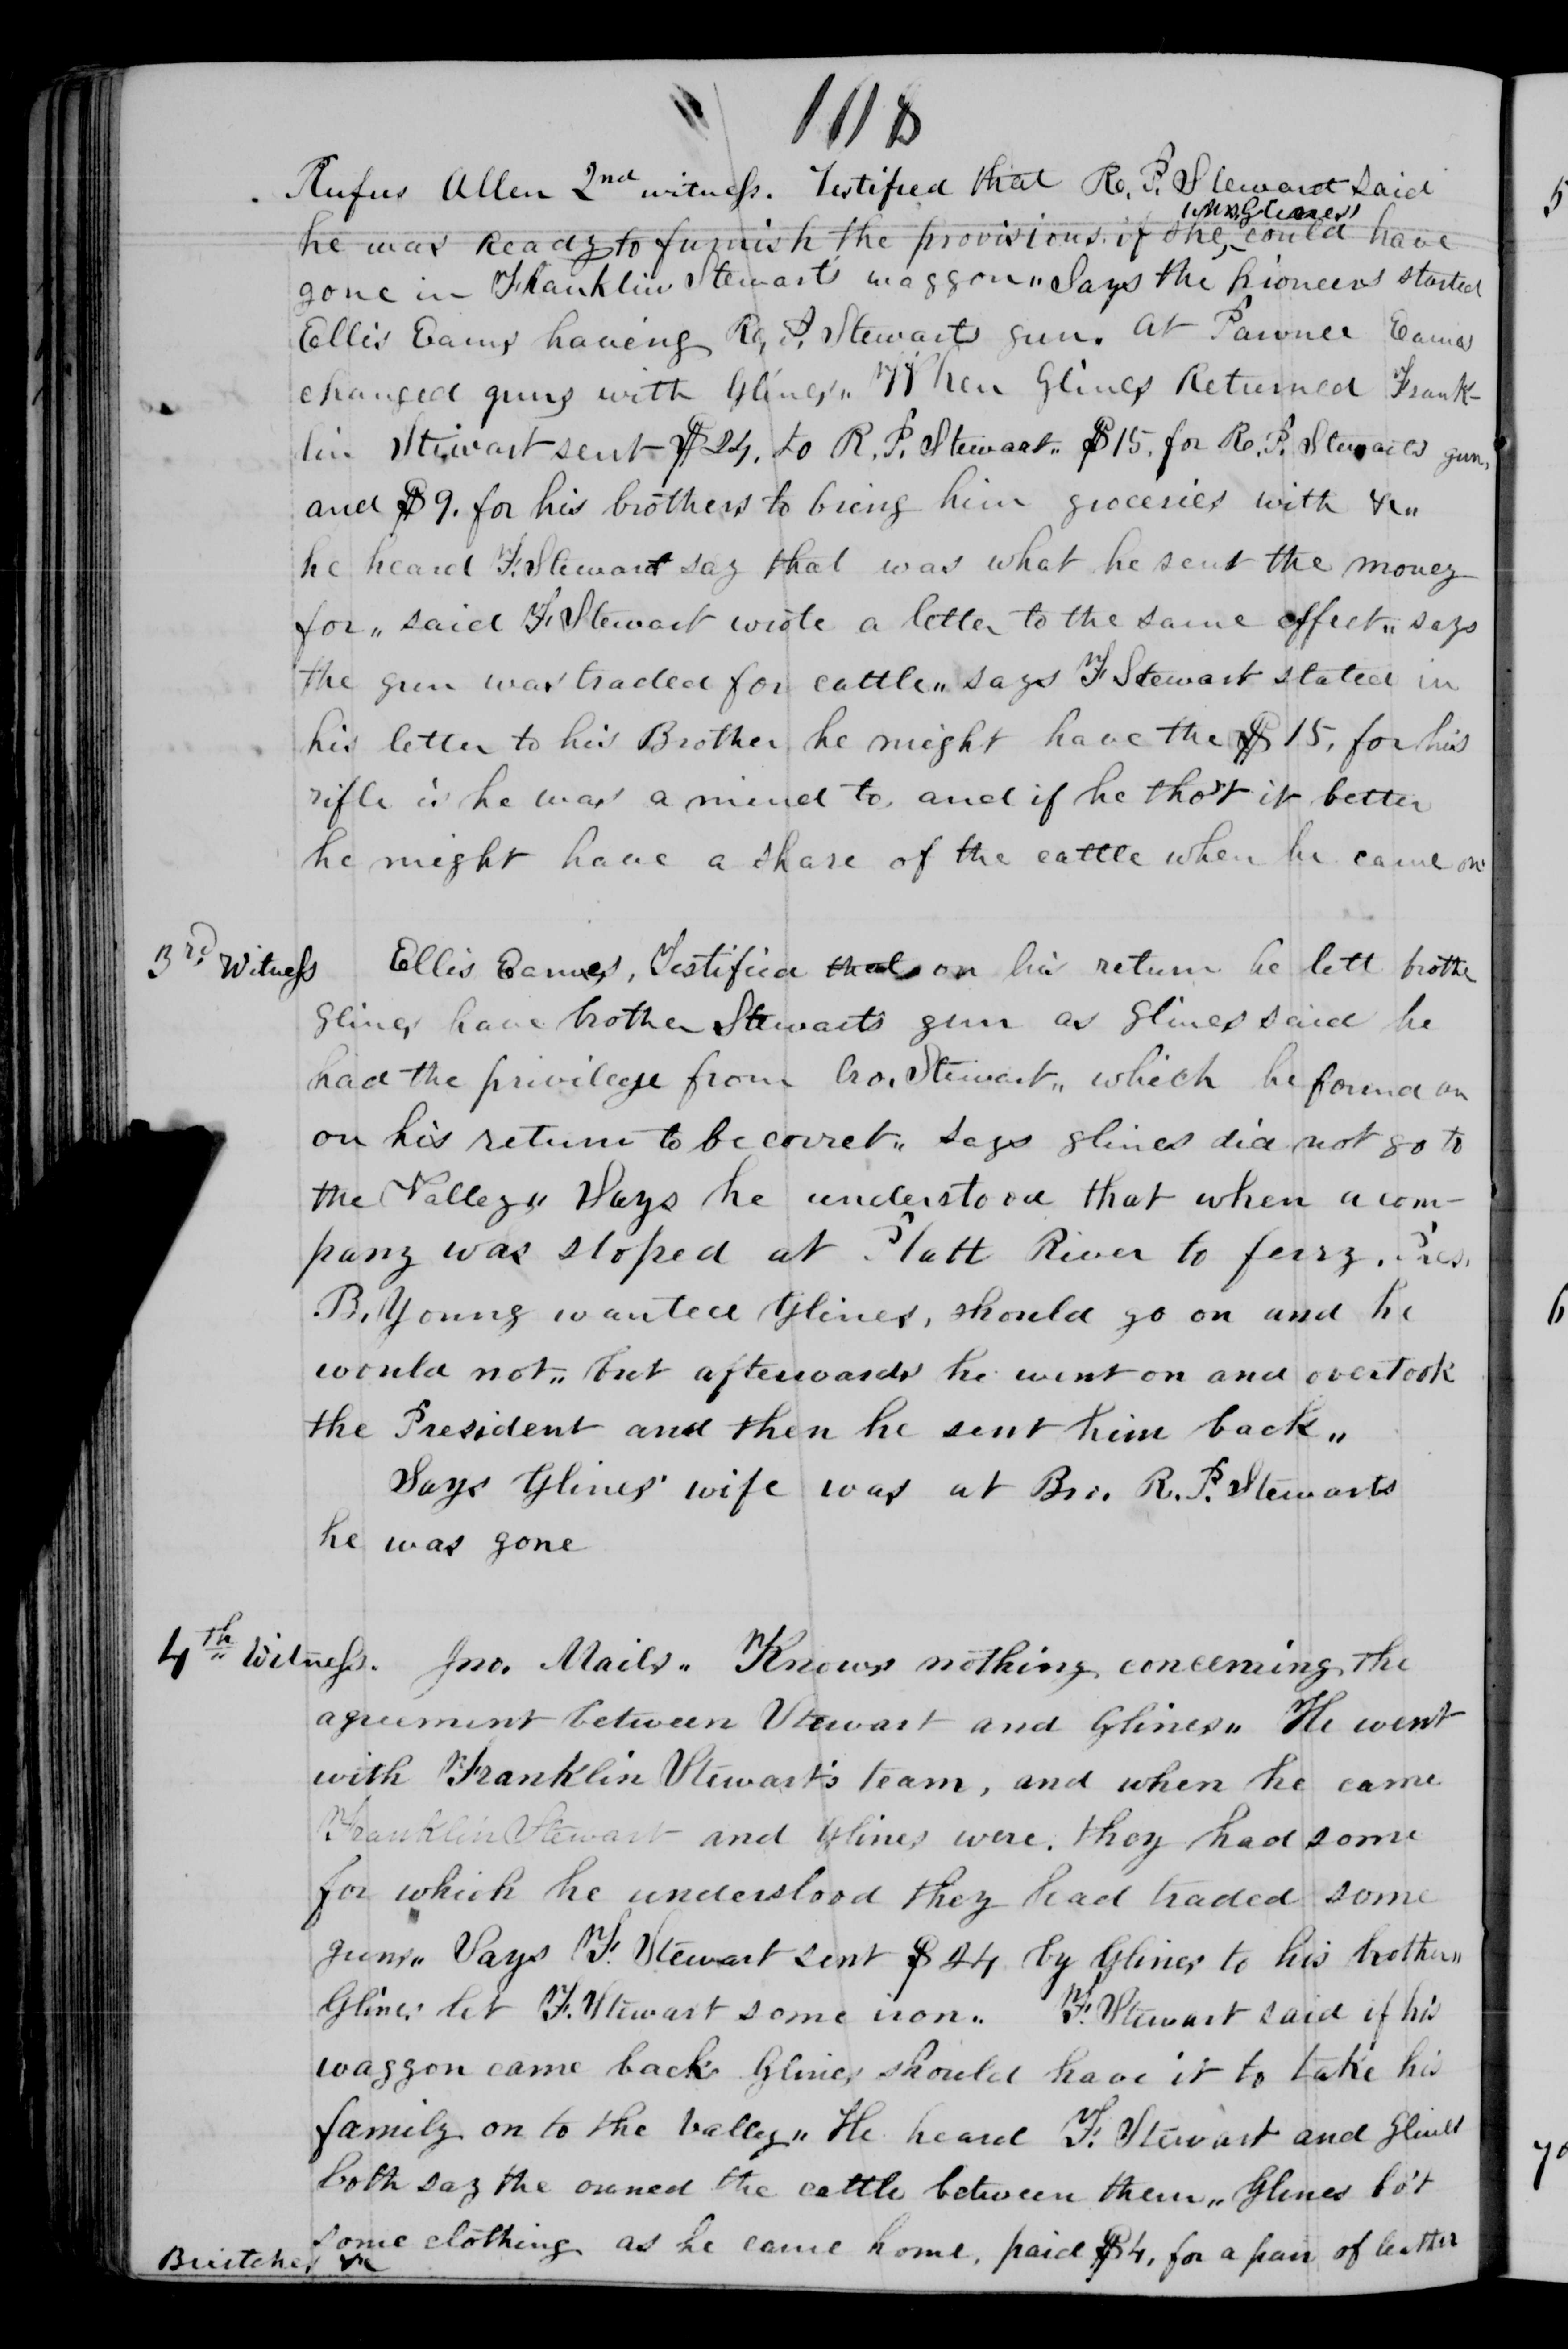 1118
Rufus Allen 2nd witness. Testified that Ro. P. Stewart said
he was ready to furnish the provisions if she, (Mrs Glines) could have
gone in Franklin Stewart's waggon" Says the pioneers started
Ellis Eams haveing Ro, P. Stewarts gun. At Pawnee Eames
changed guns with Glines" When Glines Returned Frank-
lin Stewart sent $24. to R. P. Stewart" $15. for Ro. P. Stewarts gun,
and $9. for his brothers to bring him groceries with &c"
he heard F. Stewart say that was what he sent the money
for" said F. Stewart wrote a letter to the same effect" says
the gun was traded for cattle" says F Stewart stated in
his letter to his Brother he might have the $15. for his
rifle is he was a mind to, and if he tho't it better
he might have a share of the cattle when he came on
3rd Witness Ellis Eames, Testified that on his return he lett brothe
Glines have brother Stewart's gun as Glines said he
had the privilege from bro. Stewart" which he found on
on his return to be corret" says glines did not go to
the Valley" Says he understood that when a com-
pany was stoped at Platt River to ferry. Pres.
B. Young wanted Glines, should go on and he
would not" but afterwards he went on and overtook
the President and then he sent him back"
Says Glines' wife was at Bro. R. P. Stewarts
he was gone
4th Witness. Jno. Mails" Knows nothing concerning the
agreement between Stewart and Glines" He went
with Franklin Stewart's team, and when he came
Franklin Stewart and Glines were. they had some
for which he understood they had traded some
guns" Says F. Stewart sent $24 by Glines to his brother"
Glines let F. Stewart some iron" F. Stewart said if his
waggon came back Glines should have it to take his
family on to the valley" He heard F. Stewart and Glines
both say the owned the cattle between them" Glines bo't
some clothing as he came home, paid $4, for a pair of leather
Buitches &c
5
6
7